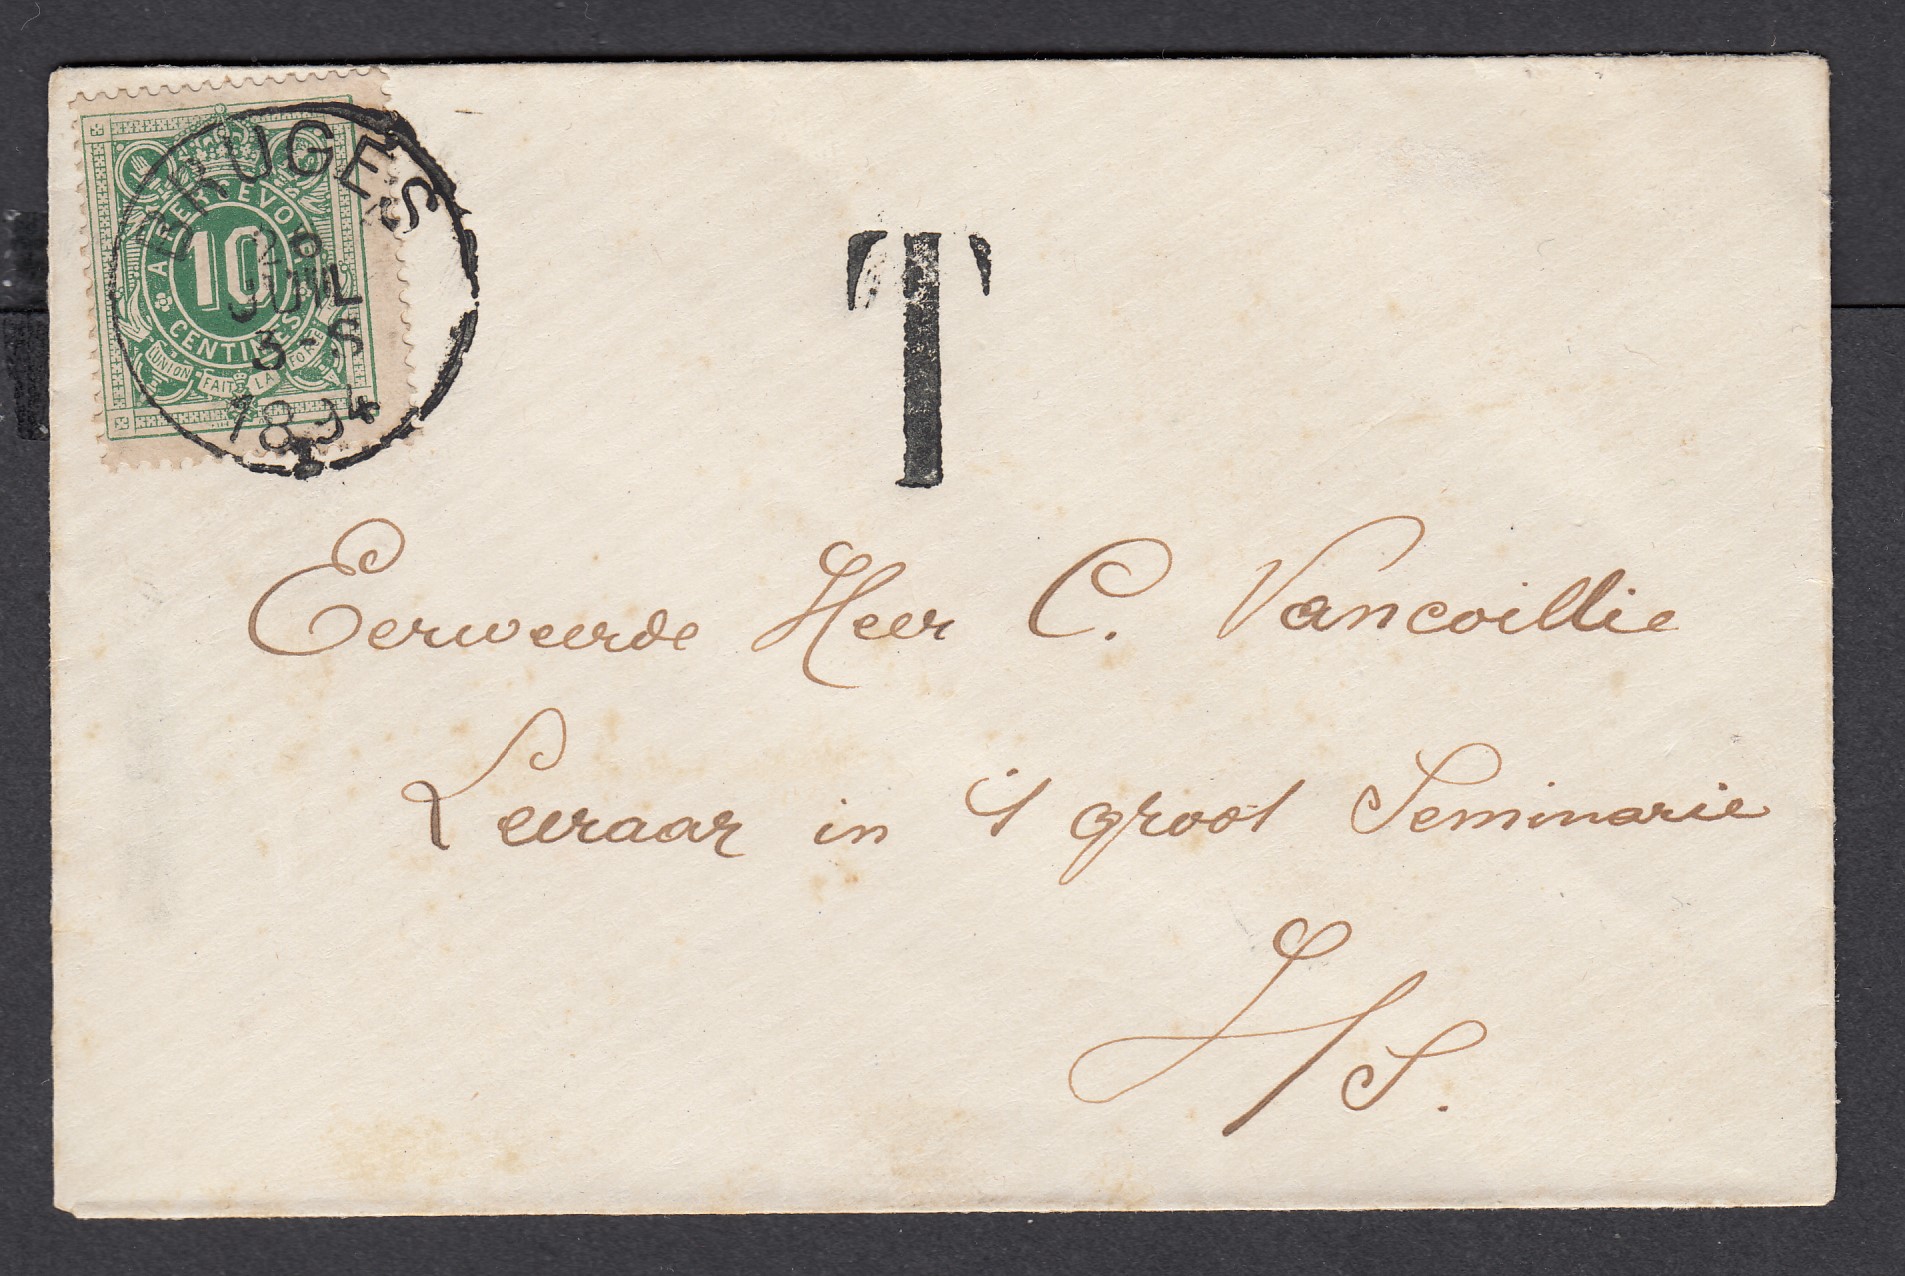 BRUGES
28
JUIL
3-S
1894
A PERCEVOIR
10
CENTIMES
L'UNION FAIT LA FORCE
T
Eerweerde Heer C. Vancoillie
Leeraar in 't groot Seminarie
S.